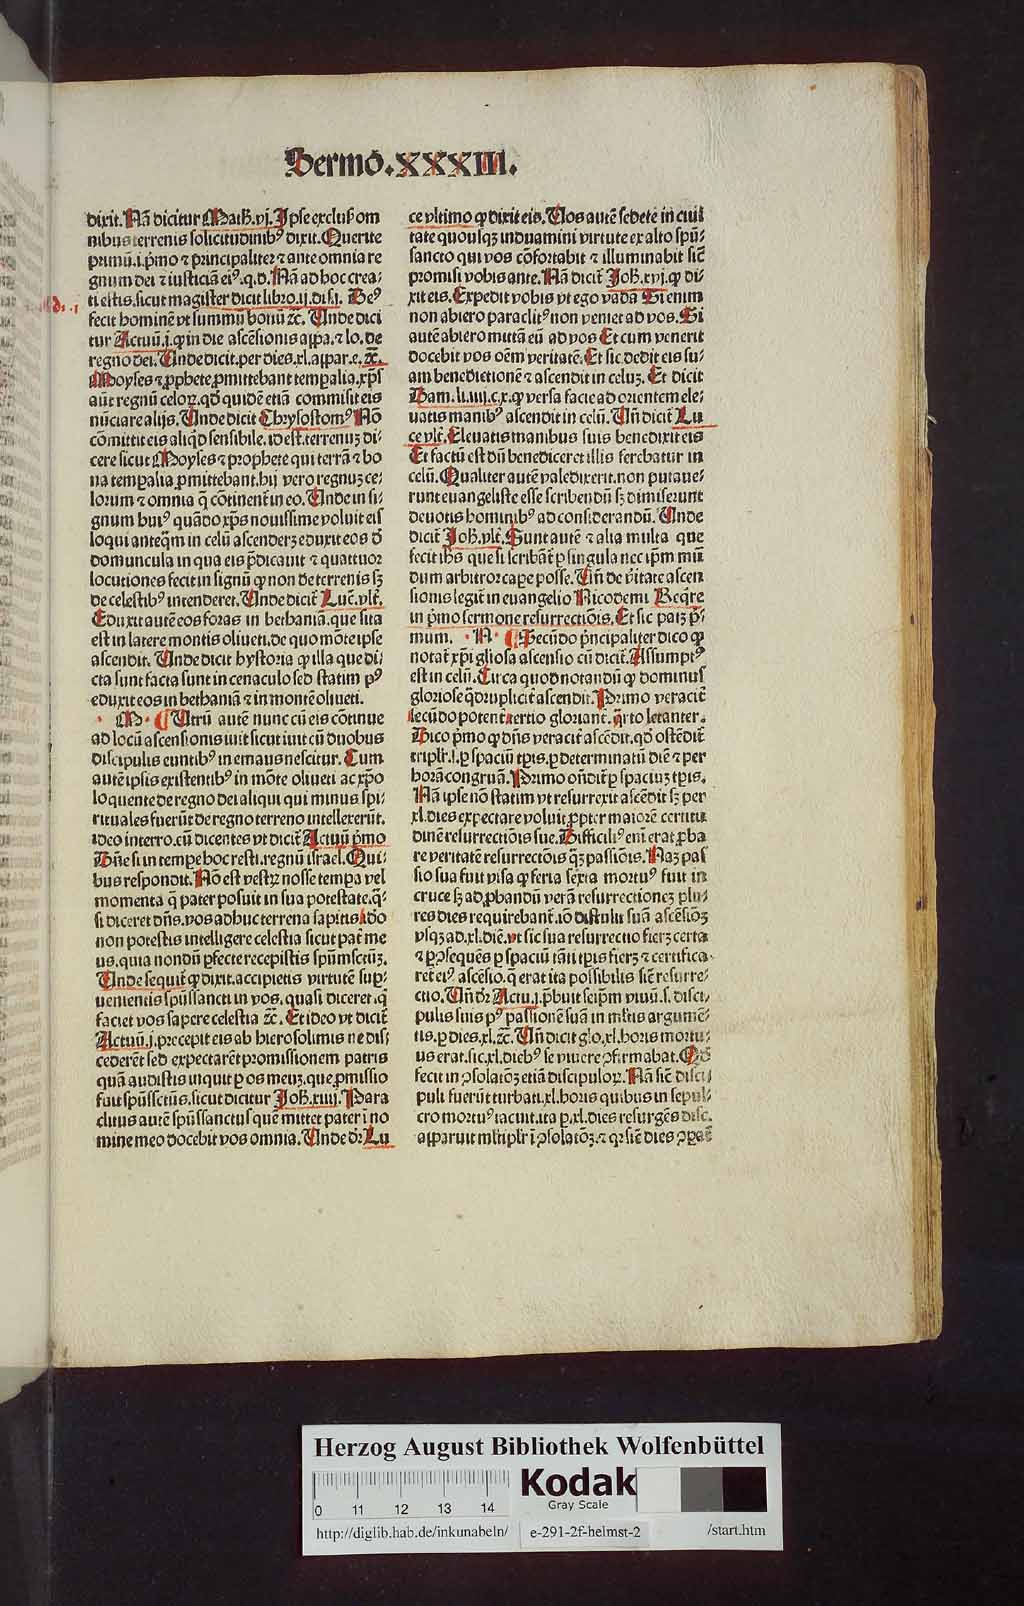 Sermo̅.XXXIII.
dixit. Na̅ dicitur Math̅. vj. Ipse exclusꝰ om
nibus terrenis solicitudinibꝰ dixit. Querite
primu̅. i. p̅mo ⁊ principaliter ⁊ ante omnia re
gnum dei ⁊ iusticia̅ eiꝰ. q. d. Na̅ ad hoc crea⸗
ti estis. sicut magister dicit libro. ij. dis. j. Deꝰ
d. i
fecit homine̅ vt summu̅ bonu̅ ⁊c̅. Unde dici
tur Actuu̅. j. ꝙ in die asce̅sionis aꝑa. ⁊ lo. de
regno dei. Unde dicit. per dies. xl. apꝑar. e. ⁊c̅.
Moyses ⁊ ꝓphete ꝓmittebant tempꝛalia. xp̅s
au̅t regnu̅ celoꝝ. qd̅ quide̅ etia̅ commisit eis
nu̅ciare alijs. Unde dicit Chrysostomꝰ No̅
co̅mittit eis aliqd̅ sensibile. id est. terrenuꝫ di⸗
cere sicut Moyses ⁊ prophete qui terra̅ ⁊ bo
na tempꝑalia ꝓmittebant. hij vero regnuꝫ ce⸗
lorum ⁊ omnia q̅ co̅tinent̅ in eo. Unde in si⸗
gnum huiꝰ qua̅do xp̅s nouissime voluit eis
loqui anteq̅m in celu̅ ascenderꝫ eduxit eos d̅
domuncula in qua eis p̅dicauit ⁊ quattuor
locutiones fecit in signu̅ ꝙ non de terrenis sꝫ
de celestibꝰ intenderet. Unde dicit̅ Luc̅. vlt̅.
Eduxit aute̅ eos foras in bethania̅. que sita
est in latere montis oliueti. de quo mo̅te ipse
ascendit. Unde dicit hystoria ꝙ illa que di⸗
cta sunt facta sunt in cenaculo sed statim pꝰ
eduxit eos in bethaniā ⁊ in monte̅ oliueti.
· M · ¶ Utru̅ aute̅ nunc cu̅ eis co̅tinue
ad locu̅ ascensionis iuit sicut iuit cu̅ duobus
discipulis euntibꝰ in emaus nescitur. Cum
aute̅ ipsis existentibꝰ in mo̅te oliueti ac xp̅o
loquente de regno dei aliqui qui minus spi⸗
rituales fueru̅t de regno terreno intellexeru̅t.
ideo interro. cu̅ dicentes vt dicit̅ Actuu̅ p̅mo
Dn̅e si in tempꝑe hoc resti. regnu̅ israel. Qui⸗
bus respondit. No̅ est vestꝝ nosse tempꝑa vel
momenta q̅ pater posuit in sua potestate. q̅⸗
si diceret dn̅s. vos adhuc terrena sapitis ido̅
non potestis intelligere celestia sicut pat̅ me
us. quia nondu̅ ꝑfecte recepistis spu̅msctuꝫ.
Unde sequit̅ ꝙ dixit. accipietis virtute̅ supꝑ⸗
uenientis spu̅ssancti in vos. quasi diceret. iq̅
faciet vos sapere celestia ⁊c̅. Et ideo vt dicit̅
Actuu̅. j. precepit eis ab hierosolimis ne dis⸗
cedere̅t sed expectare̅t promissionem patris
qua̅ audistis inquit ꝑ os meuꝫ. que ꝓmissio
fuit spu̅ssctu̅s. sicut dicitur Joh̅. xiiij. Para
clitus aute̅ spu̅ssanctus que̅ mittet pater i̅ no
mine meo docebit vos omnia. Unde dr̅ Lu
ce vltimo ꝙ dixit eis. Uos aute̅ sedete in ciui
tate quousqꝫ induamini virtute ex alto spu̅⸗
sancto qui vos co̅fortabit ⁊ illuminabit sic̅
promisi vobis ante. Na̅ dicit̅ Joh̅. xvj. ꝙ di⸗
xit eis. Expedit vobis vt ego vada̅ Si enim
non abiero paraclitꝰ non veniet ad vos. Si
aute̅ abiero mitta̅ eu̅ ad vos Et cum venerit
docebit vos oe̅m veritate̅. Et sic dedit eis su⸗
am benedictione̅ ⁊ ascendit in celuꝫ. Et dicit
Dam. li. iiij. c. x. ꝙ versa facie ad oriente̅ ele⸗
uatis manibꝰ ascendit in celu̅. Un̅ dicit̅ Lu
ce vlt̅. Eleuatis manibus suis benedixit eis
Et factu̅ est du̅ benediceret illis ferebatur in
celu̅. Qualiter aute̅ valedixerit. non putaue⸗
runt euangeliste esse scribendu̅ sꝫ dimiserunt
deuotis hominibꝰ ad considerandu̅. Unde
dicit̅ Joh̅. vlt̅. Sunt aute̅ ⁊ alia multa que
fecit ihs̅ que si scriba̅t̅ ꝑ singula nec ip̅m mu̅
dum arbitror capꝑe posse. Un̅ de v̅itate ascen
sionis legit̅ in euangelio Nicodemi Req̅re
in p̅mo sermone resurrectio̅is. Et sic patꝫ p̅⸗
mum. · N · ¶ Secu̅do p̅ncipaliter dico ꝙ
notat̅ xp̅i gliosa ascensio cu̅ dicit̅. Assumptꝰ
est in celu̅. Circa quod notandu̅ ꝙ dominus
gloriose q̅druplicit̅ ascendit. Primo veracit̅
secu̅do potent̅ tertio gloriant̅. q̅rto letanter.
Dico p̅mo ꝙ dn̅s veracit̅ asce̅dit. qd̅ ostẽdit̅
triplr̅. s. ꝑ spaciu̅ tpis. ꝑ determinatu̅ die̅ ⁊ per
hora̅ congrua̅. Primo on̅dit̅ ꝑ spaciuꝫ tp̅is.
Na̅ ipse no̅ statim vt resurrexit asce̅dit sꝫ per
xl. dies expectare voluit ꝓpter maiore̅ certitu
dine̅ resurrectio̅is sue. Difficiliꝰ em̅ erat ꝓba
re veritate̅ resurrecto̅is q̅ꝫ passio̅is. Naꝫ pas
sio sua fuit visa ꝙ feria sexta mortuꝰ fuit in
cruce sꝫ ad ꝓbandu̅ vera̅ resurrectioneꝫ plu⸗
res dies requirebant̅. io̅ distulit sua̅ asce̅sio̅ꝫ
vsqꝫ ad. xl. die̅. vt sic sua resurrectio fierꝫ certa
⁊ ꝑ ꝯseque̅s ꝑ spaciu̅ ta̅ti tp̅is fierꝫ ⁊ certifica⸗
ret̅ eiꝰ asce̅sio. q̅ erat ita possibilis sic̅ resurre⸗
ctio. Un̅ dr̅ Actu. j. p̅buit seip̅m viuu̅. s. disci⸗
pulis suis pꝰ passione̅ sua̅ in ml̅tis argume̅⸗
tis. ꝑ dies. xl. ⁊c̅. Un̅ dicit glo. xl. horis mortu⸗
us erat. sic. xl. diebꝰ se viuere ꝯfirmabat. Qd̅
fecit in ꝯsolato̅ꝫ etia̅ discipuloꝝ. Na̅ sic̅ disci⸗
puli fueru̅t turbati. xl. horis quibus in sepul⸗
cro mortuꝰ iacuit. ita ꝑ. xl. dies resurge̅s disc.
apparuit ml̅tiplr̅ i̅ ꝯsolato̅ꝫ. ⁊ qꝛ sic̅ dies
Herzog August Bibliothek Wolfenbüttel
0 11 12 13 14
Kodak
Gray Scale
http://diglib.hab.de/inkunabeln/ e-291-2f-helmst-2 /start.htm